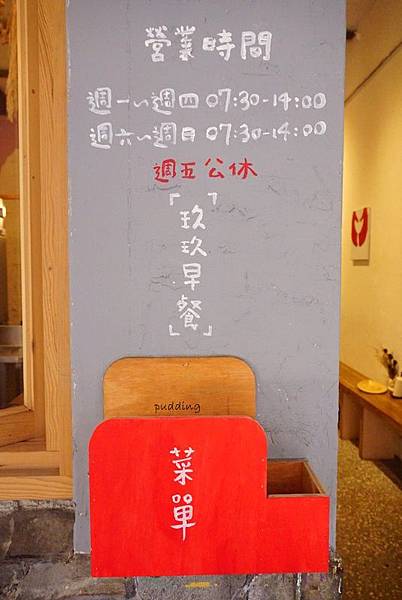 營業時間
週一~週四 07:30-14:00
週六~週日 07:30-14:00
週五公休
「玖玖早餐」
pudding
菜單